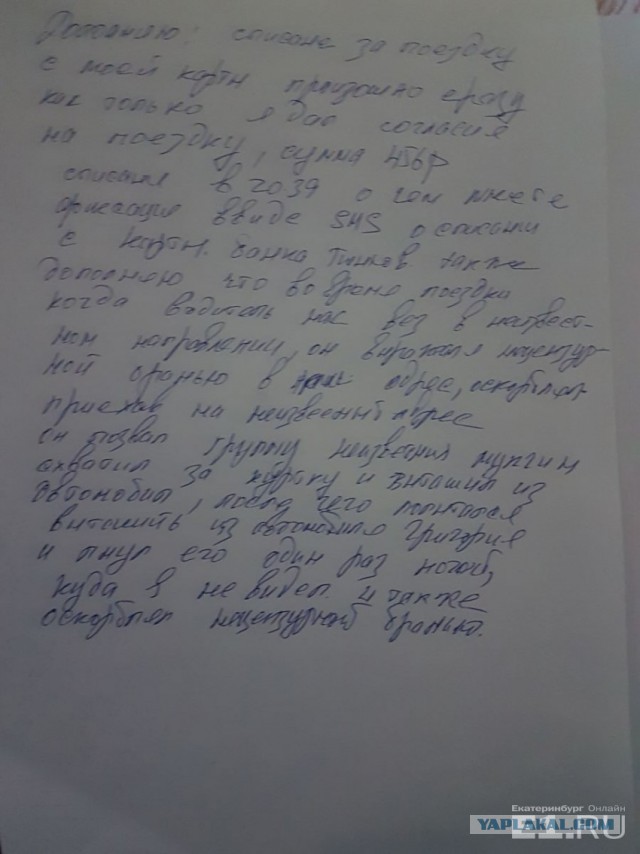 Дополняю: списание за поездку
с моей карты произошло сразу
как только я дал согласия
на поездку, сумма 456р
списания в 20 39 о чем имеется
фиксация ввиде SMS о списани
с карты. банка Тинков. также
дополняю что во время поездки
когда водитель нас вез в неизвест-
ном направлении, он выражался нецензур-
ной бранью в наш адрес, оскорблял
приехав на неизвестный адрес
он позвал группу неизвестных мужчин
схватил за куртку и вытащил из
автомобиля, после чего попытался
вытащить из автомобиля Григория
и пнул его один раз ногой,
куда я не видел и также
оскорблял нецензурной бранью.
Екатеринбург Онлайн
YAPLAKAL.COM
E1.RU